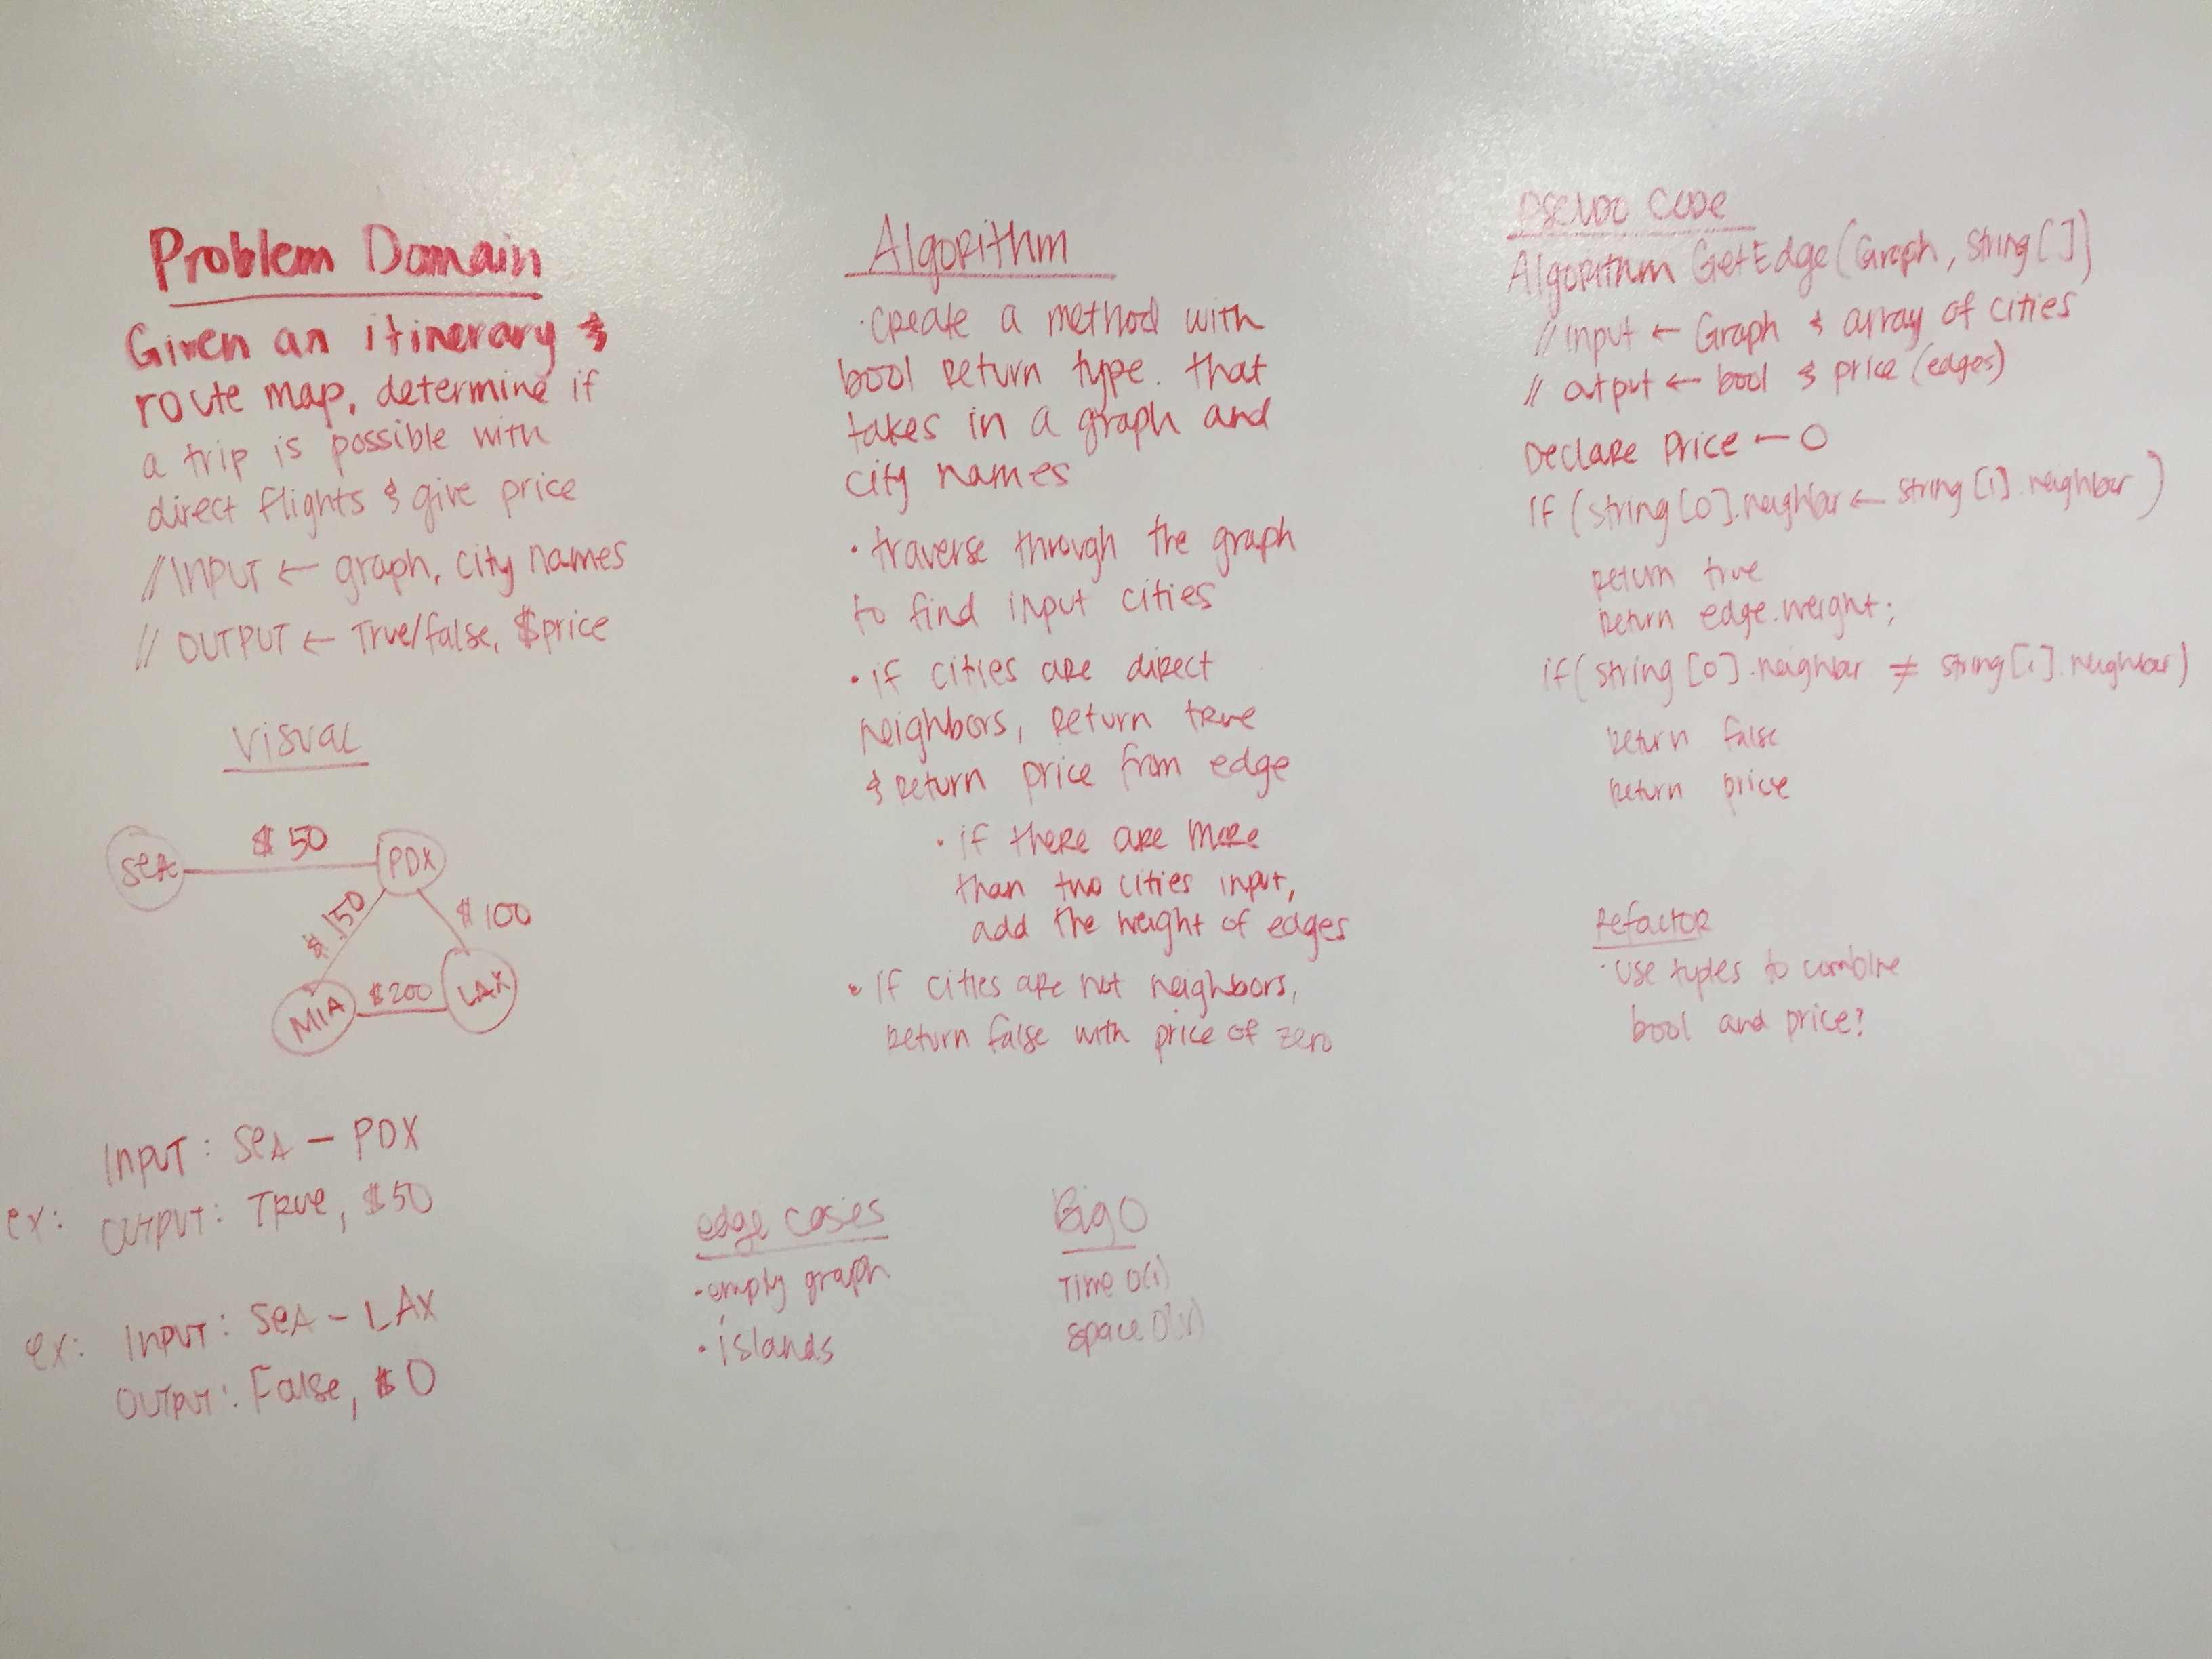 Problem Domain
Given an itinerary &
route map, determine if
a trip is possible with
direct flights & give price
//INPUT ← graph, city names
// OUTPUT ← True/false, $price
Visual
SEA
$50
PDX
$150
$100
MIA
$200
LAX
ex:
INPUT: SEA - PDX
OUTPUT: TRUE, $50
ex:
INPUT: SEA - LAX
OUTPUT: False, $0
Algorithm
· create a method with
bool return type. that
takes in a graph and
city names
· traverse through the graph
to find input cities
· if cities are direct
neighbors, return true
& return price from edge
· if there are more
than two cities input,
add the weight of edges
· if cities are not neighbors,
return false with price of zero
edge cases
· empty graph
· islands
Big O
Time O(1)
space
PSEUDO CODE
Algorithm GetEdge(Graph, String[])
// input ← Graph & array of cities
// output ← bool & price (edges)
Declare Price ← 0
if (string[0].neighbor ← string[1].neighbor)
return true
return edge.weight;
if (string[0].neighbor ≠ string[1].neighbor)
return false
return price
Refactor
· use tuples to combine
bool and price?